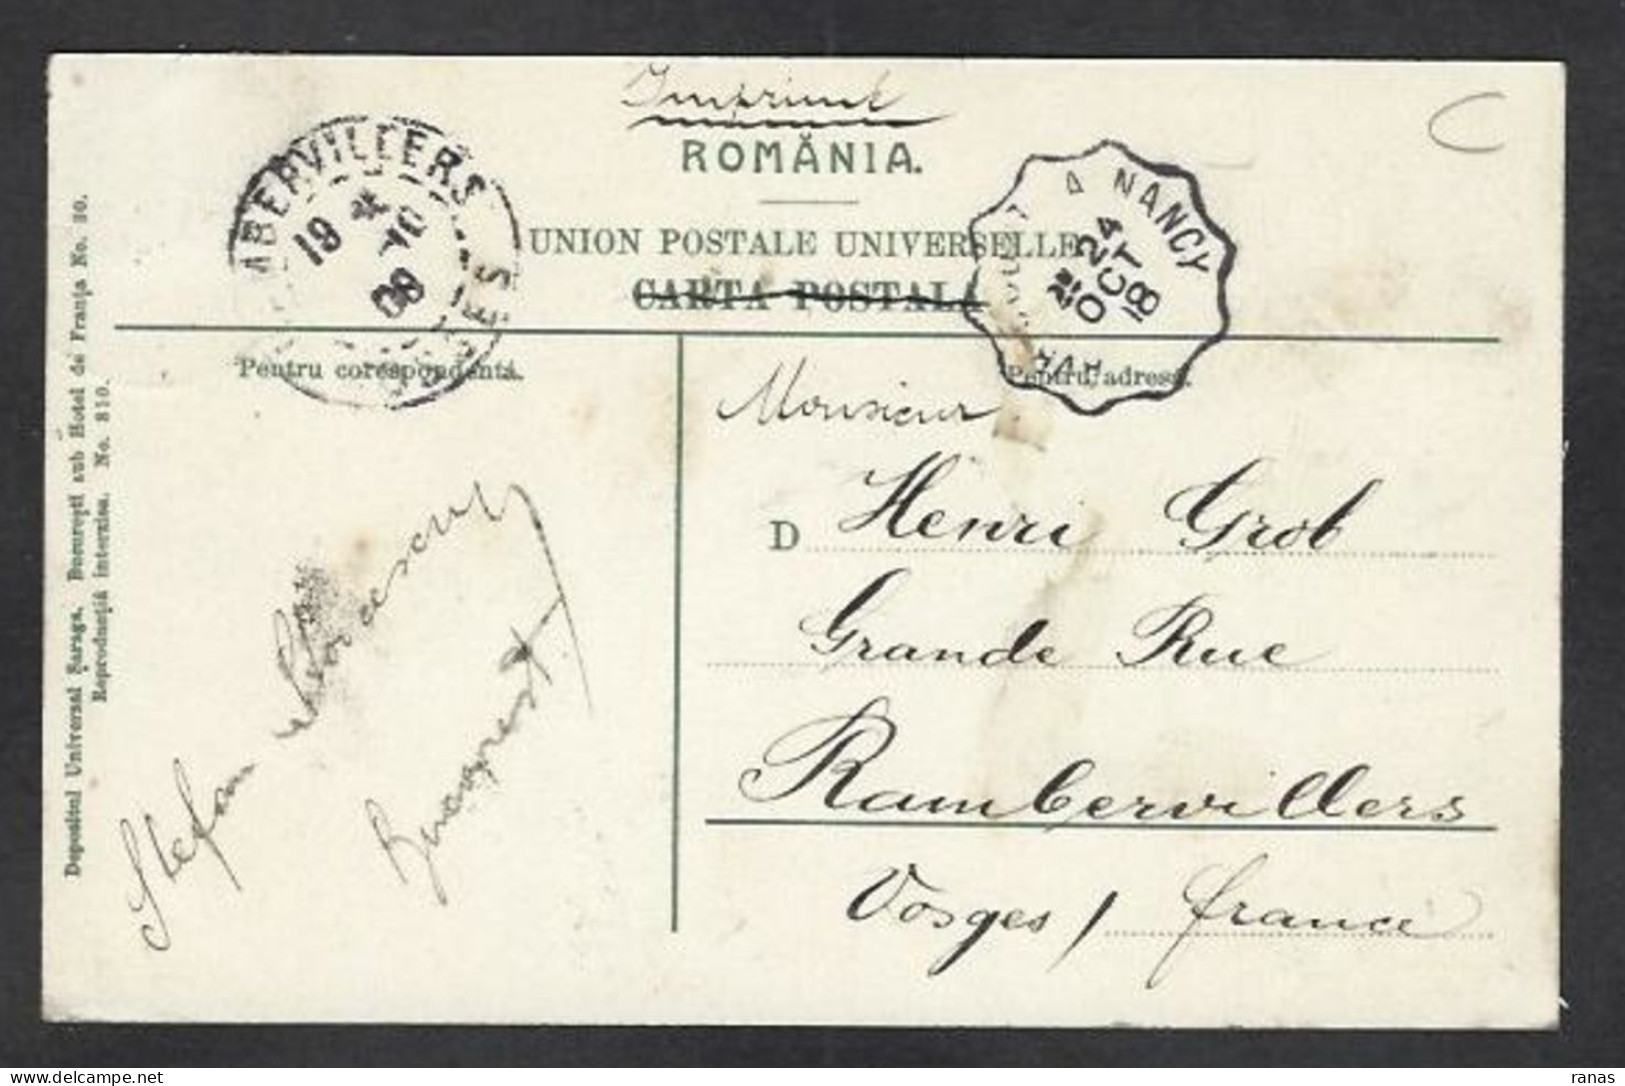 Imprimé
ROMÂNIA.
UNION POSTALE UNIVERSELLE
CARTA POSTALA
Pentru corespondentă.
Pentru adresă.
Depositul Universal Șaraga, București sub Hotel de Franța No. 30.
Reproducția interzisa. No. 810.
AMBERVILLERS
19 10
08
VOSGES
A NANCY
24
OCT
Monsieur
D Henri Grob
Grande Rue
Rambervillers
Vosges / france
Stefan
Bucarest
ranas